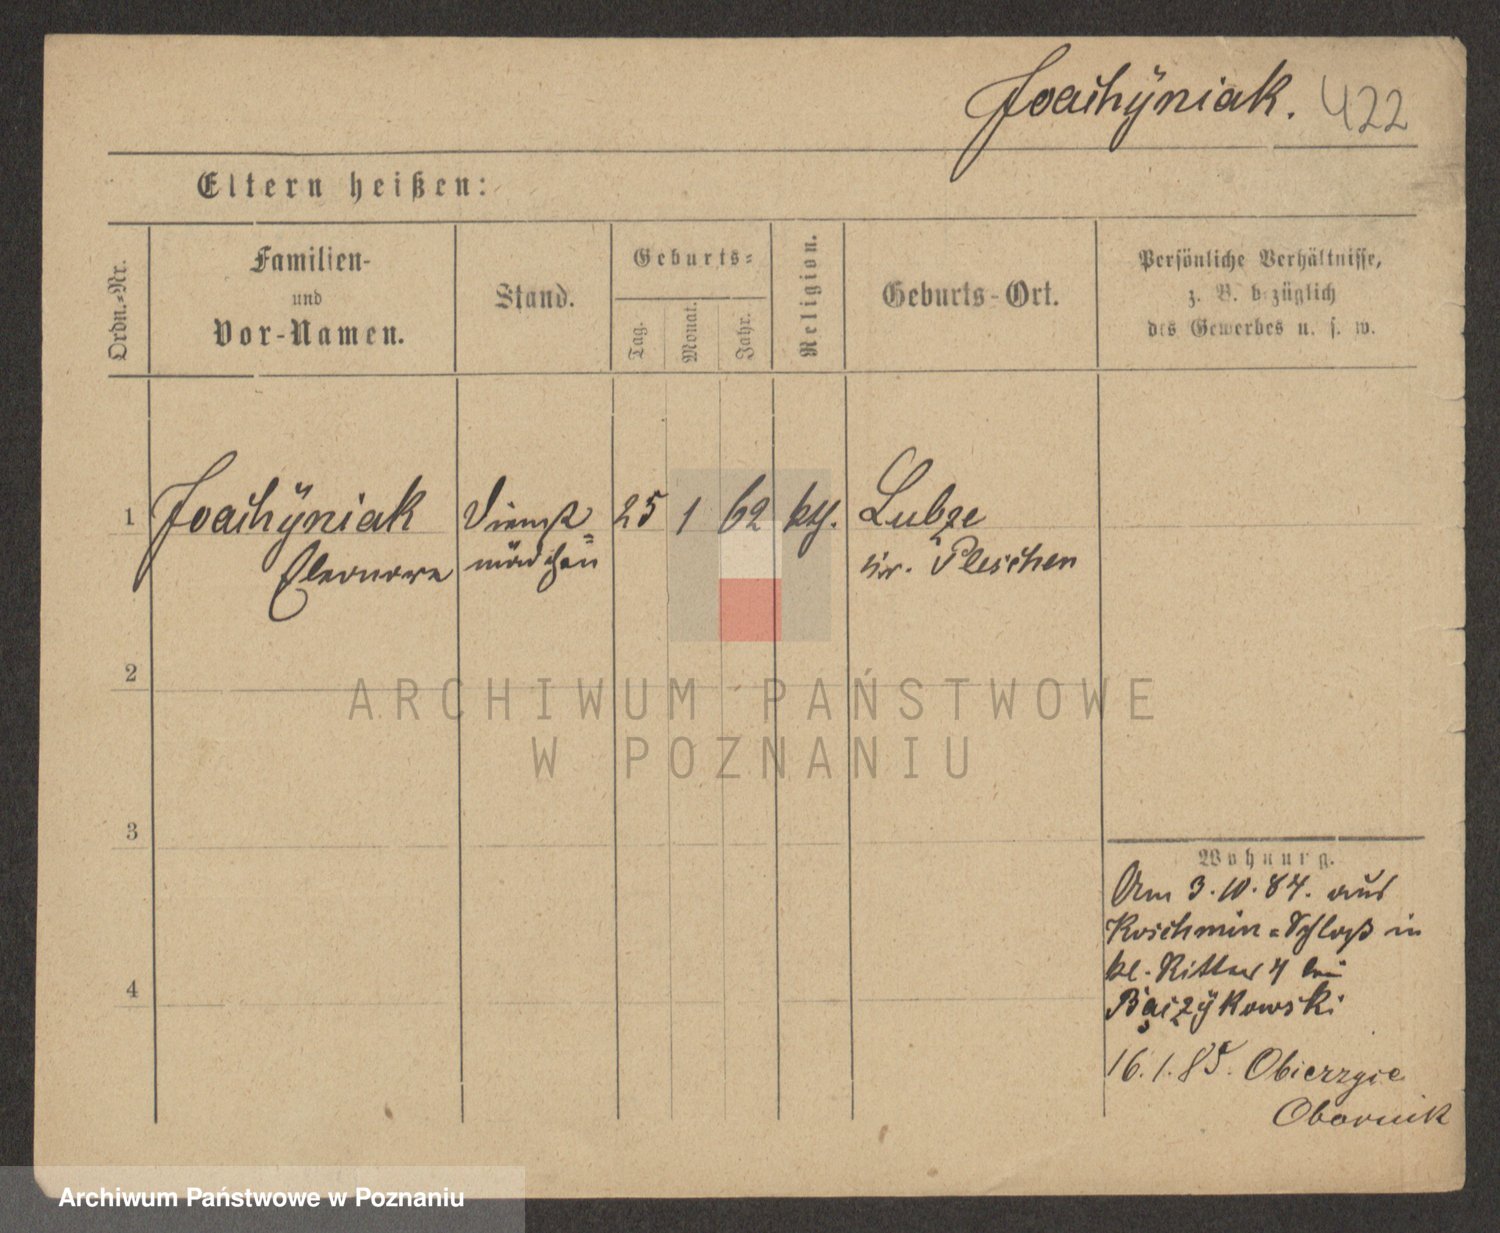 Joachÿniak. 422
Eltern heißen:
Ordn.-Nr.
Familien-
und
Vor-Namen.
Stand.
Geburts-
Tag.
Monat.
Jahr.
Religion.
Geburts-Ort.
Persönliche Verhältnisse,
z. B. bezüglich
des Gewerbes u. s. w.
1 Joachÿniak Dienst= 25 1 62 kth. Lubze
Eleonore mädchen Kr. Pleschen
2
3
4
Wohnung.
Am 3.10.84. aus
Koschmin-Schloß in
kl. Ritter 4 bei
Bączÿkowski
16.1.85. Obierzgie
Obornik
ARCHIWUM PAŃSTWOWE
W POZNANIU
Archiwum Państwowe w Poznaniu